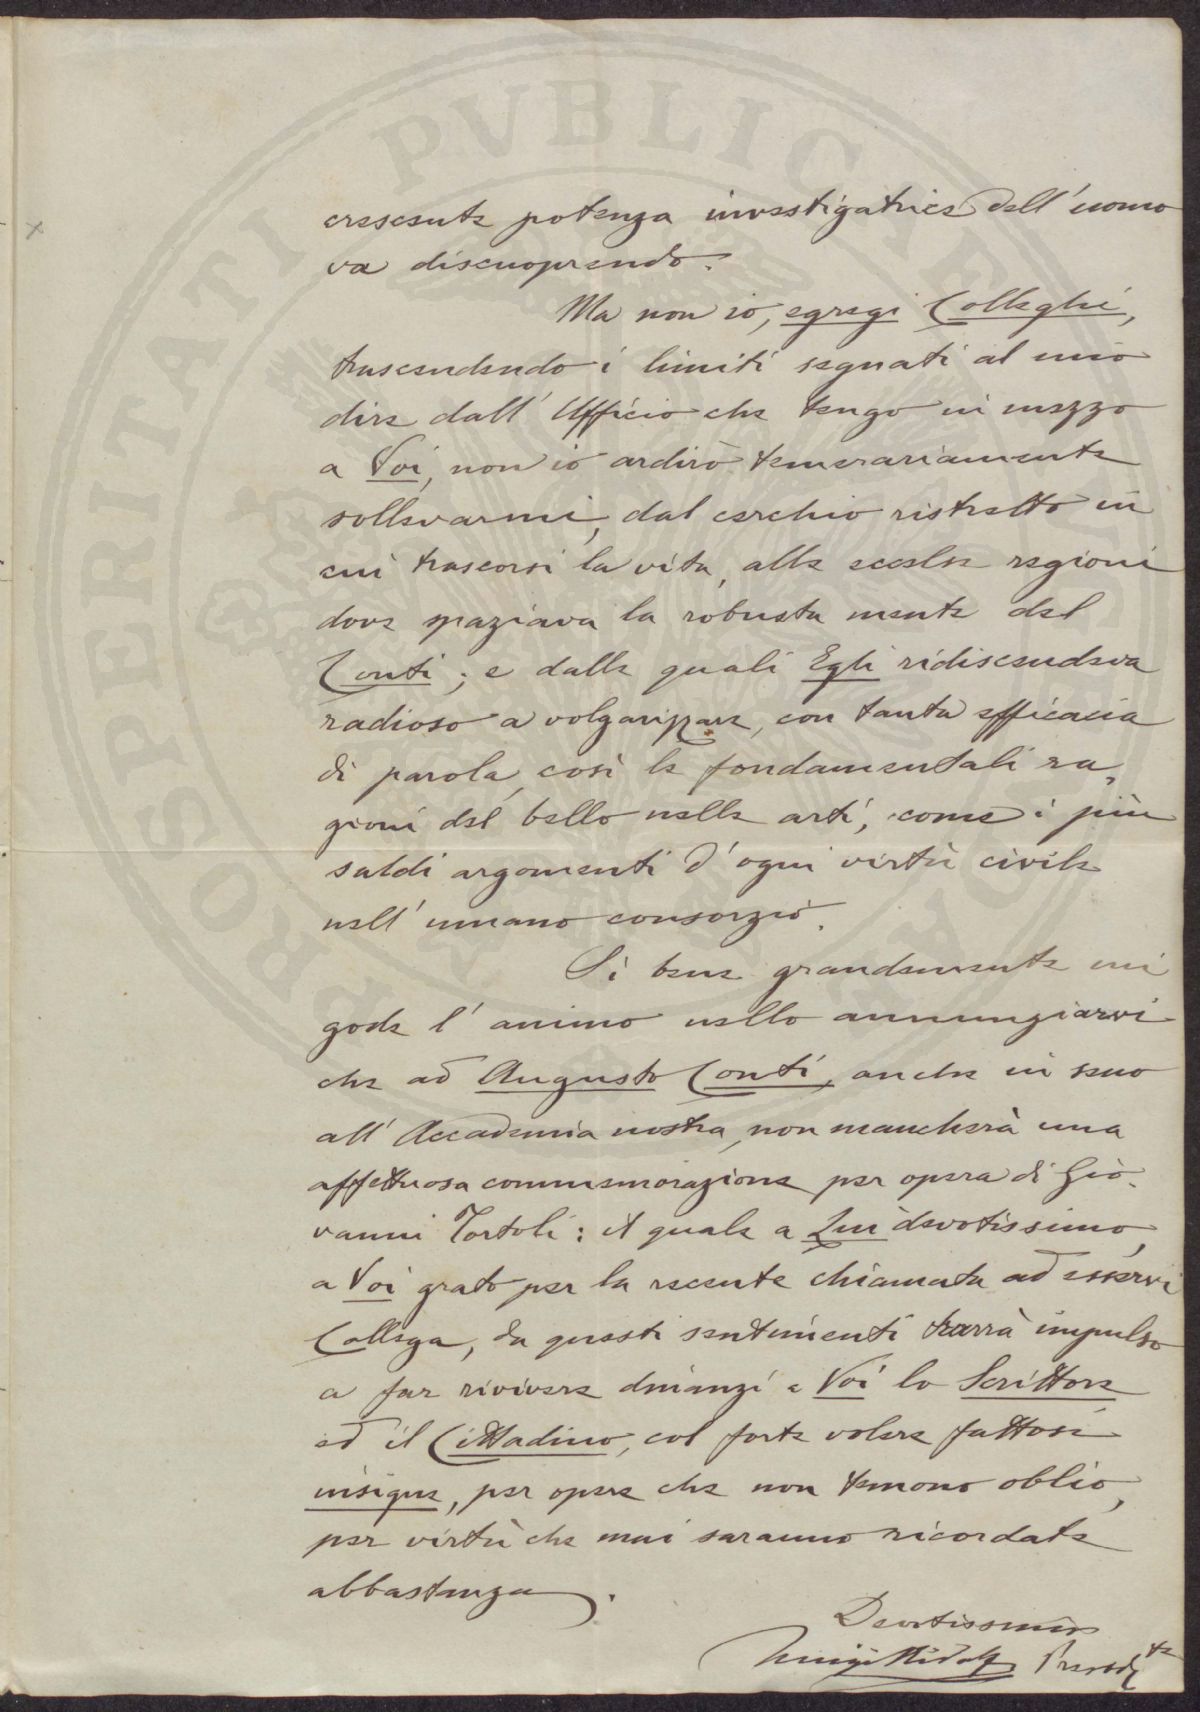 PROSPERITATI PVBLICAE
crescente potenza investigatrice dell'uomo
va discuoprendo.
Ma non io, egregi Colleghi,
trascendendo i limiti segnati al mio
dire dall'Ufficio che tengo in mezzo
a Voi, non io ardirò temerariamente
sollevarmi, dal cerchio ristretto in
cui trascorsi la vita, alle eccelse regioni
dove spaziava la robusta mente del
Conti; e dalle quali Egli ridiscendeva
radioso a volgarizzare, con tanta efficacia
di parola, così le fondamentali ra-
gioni del bello nelle arti, come i più
saldi argomenti d'ogni virtù civile
nell'umano consorzio.
Sì bene grandemente mi
gode l'animo nello annunziarvi
che ad Augusto Conti, anche in seno
all'Accademia nostra, non mancherà una
affettuosa commemorazione per opera di Gio-
vanni Tortoli: il quale a Lui devotissimo,
a Voi grato per la recente chiamata ad esservi
Collega, da questi sentimenti trarrà impulso
a far rivivere dinanzi a Voi lo Scrittore
ed il Cittadino, col forte volere fattosi
insigne, per opere che non temono oblio,
per virtù che mai saranno ricordate
abbastanza.
Devotissimo
Luigi Ridolfi Presid.te